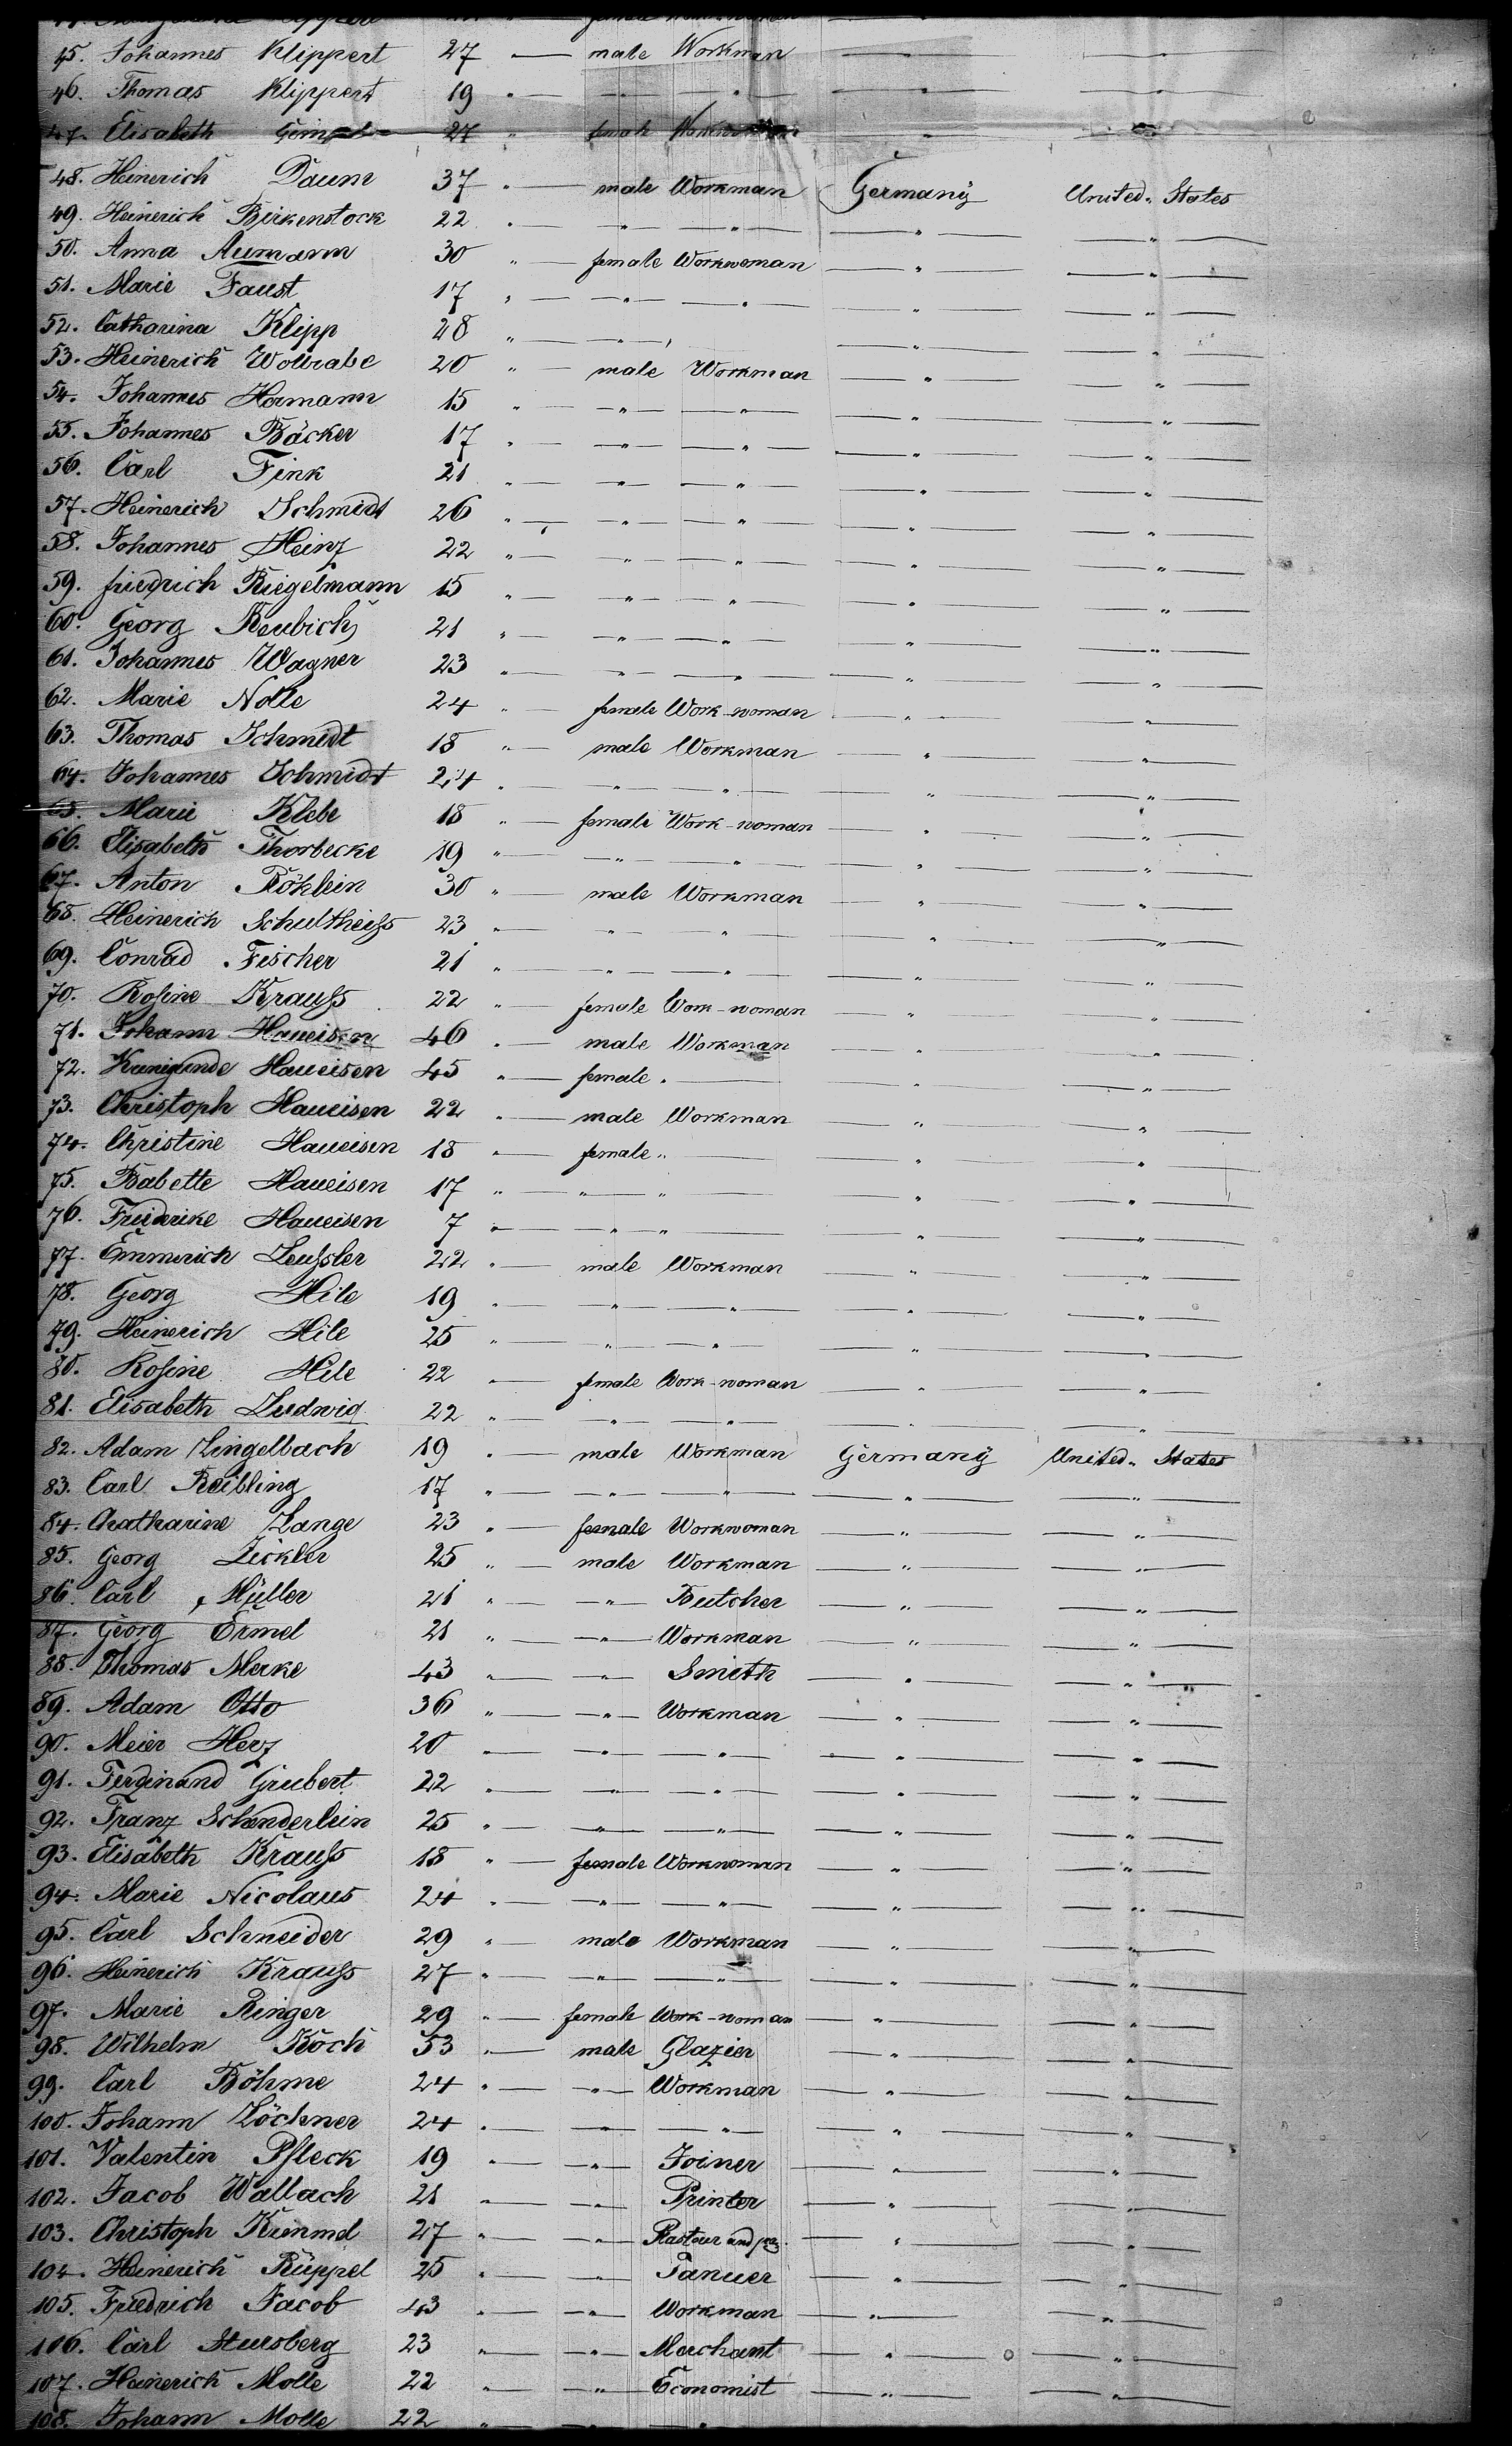 45. Johannes Klippert 27 " male Workman " "
46. Thomas Klippert 19 " " " " "
47. Elisabeth 27 " female " "
48. Heinerich Daum 37 " male Workman Germany United States
49. Heinerich Birkenstock 22 " " " " "
50. Anna Aumann 30 " female Workwoman " "
51. Marie Faust 17 " " " " "
52. Catharina Klipp 28 " " " "
53. Heinerich Wollrabe 20 " male Workman " "
54. Johannes Hermann 15 " " " " "
55. Johannes Bäcker 17 " " " " "
56. Carl Fink 21 " " " " "
57. Heinerich Schmidt 26 " " " " "
58. Johannes Heinz 22 " " " " "
59. friedrich Riegelmann 15 " " " " "
60. Georg Reubich 21 " " " " "
61. Johannes Wagner 23 " " " " "
62. Marie Nolle 24 " female Work-woman " "
63. Thomas Schmidt 18 " male Workman " "
64. Johannes Schmidt 24 " " " " "
65. Marie Klebe 18 " female Work-woman " "
66. Elisabeth Thorbecke 19 " " " " "
67. Anton 30 " male Workman " "
68. Heinerich Schultheiß 23 " " " " "
69. Conrad Fischer 21 " " " " "
70. Rosine Krauß 22 " female Work-woman " "
71. Johann Haueisen 46 " male Workman " "
72. Kunigunde Haueisen 45 " female " " "
73. Christoph Haueisen 22 " male Workman " "
74. Christine Haueisen 18 " female " " "
75. Babette Haueisen 17 " " " " "
76. Friederike Haueisen 7 " " " " "
77. Emmerich Leußler 22 " male Workman " "
78. Georg Hile 19 " " " " "
79. Heinerich Hile 25 " " " " "
80. Rosine Hile 22 " female Work-woman " "
81. Elisabeth Ludwig 22 " " " " "
82. Adam Lingelbach 19 " male Workman Germany United States
83. Carl Reibling 17 " " " " "
84. Chatharine Lange 23 " female Workwoman " "
85. Georg Zickler 25 " male Workman " "
86. Carl Müller 21 " " Butcher " "
87. Georg Ermel 21 " " Workman " "
88. Thomas Merke 43 " " Smith " "
89. Adam Otto 36 " " Workman " "
90. Meier Herz 20 " " " " "
91. Ferdinand Grubert 22 " " " " "
92. Franz Schenderlein 25 " " " " "
93. Elisabeth Krauß 18 " female Workwoman " "
94. Marie Nicolaus 24 " " " " "
95. Carl Schneider 29 " male Workman " "
96. Heinerich Krauß 27 " " " " "
97. Marie Ringer 29 " female Work-woman " "
98. Wilhelm Koch 53 " male Glazier " "
99. Carl Böhme 24 " " Workman " "
100. Johann Löchner 24 " " " " "
101. Valentin Pfleck 19 " " Joiner " "
102. Jacob Wallach 21 " " Printer " "
103. Christoph Kümmel 27 " " and " "
104. Heinerich Rüppel 25 " " Tanner " "
105. Friedrich Jacob 43 " " Workman " "
106. Carl Stursberg 23 " " Merchant " "
107. Heinerich Molle 22 " " Economist " "
108. Johann Molle 22 " " "